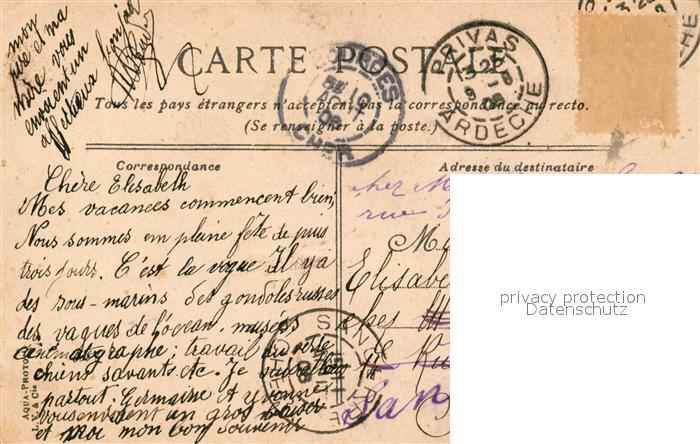 mon
père et ma
mère vous
envoient un
affectueux bonjour
CARTE POSTALE
Tous les pays étrangers n'acceptent pas la correspondance au recto.
(Se renseigner à la poste.)
PRIVAS
ARDECHE
BOURGES
CHER
Correspondance
Adresse du destinataire
Chère Elisabeth
Mes vacances commencent bien,
Nous sommes em pleine fête de puis
trois jours. C'est la vogue Il y a
des sous-marins des gondoles russes
des vagues de l'océan. musées
cinématographe; travail du verre
chiens savants etc. Je
partout. Germaine et Yvonne
vous envoient un gros baiser
et moi mon bon souvenir
chez M
rue
M
Elisabe
chez
AQUA-PHOTO
L. V. & Cie
privacy protection
Datenschutz